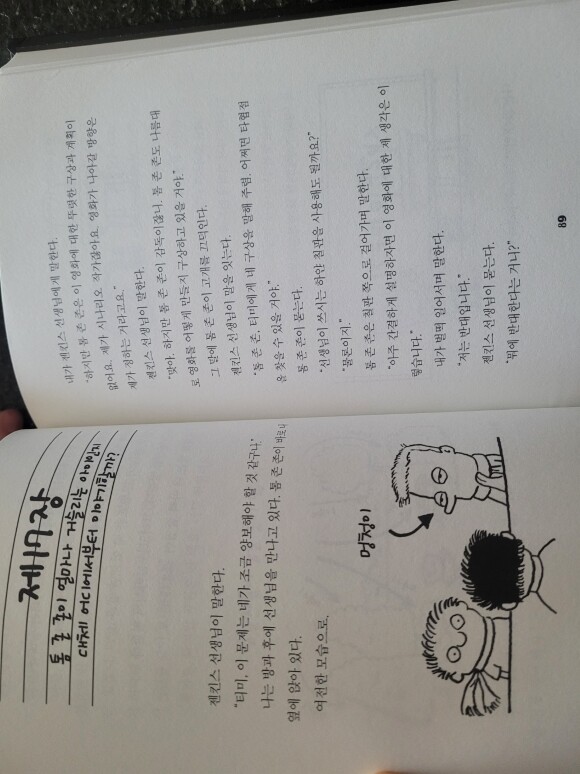 제17장
톰 존 존이 얼마나 나를 귀찮게 하는지
대체 어디에서부터 이야기해야 할까
젠킨스 선생님이 말한다.
"티미, 이 문제는 네가 조금 양보해야 할 것 같구나."
나는 방과 후에 선생님을 만나고 있다. 톰 존 존이 바로 내
옆에 앉아 있다.
여전한 모습으로.
멍청이
내가 젠킨스 선생님에게 말한다.
"하지만 톰 존 존은 이 영화에 대한 뚜렷한 구상과 계획이
없어요. 제가 시나리오 작가잖아요. 영화가 나아갈 방향은
제가 정하는 거라고요."
젠킨스 선생님이 말한다.
"맞아. 하지만 톰 존 존이 감독이잖니. 톰 존 존도 나름대
로 영화를 어떻게 만들지 구상하고 있을 거야."
그 말에 톰 존 존이 고개를 끄덕인다.
젠킨스 선생님이 말을 잇는다.
"톰 존 존, 티미에게 네 구상을 말해 주렴. 어쩌면 타협점
을 찾을 수 있을 거야."
톰 존 존이 묻는다.
"선생님이 쓰시는 하얀 칠판을 사용해도 될까요?"
"물론이지."
톰 존 존은 칠판 쪽으로 걸어가며 말한다.
"아주 간결하게 설명하자면 이 영화에 대한 제 생각은 이
렇습니다."
내가 벌떡 일어서며 말한다.
"저는 반대입니다."
젠킨스 선생님이 묻는다.
"뭐에 반대한다는 거니?"
89